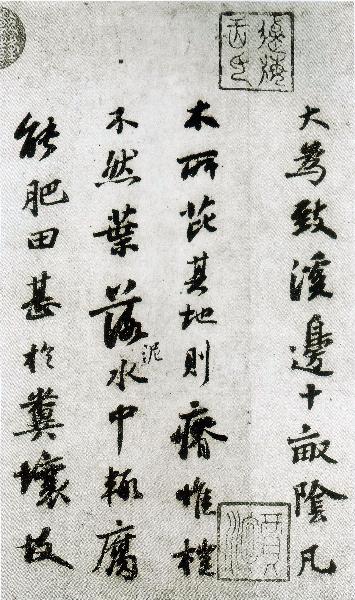 大爲致溪邊十畝陰凡
木所芘其地則瘠惟榿
不然葉落泥水中輒腐
能肥田甚於糞壤故